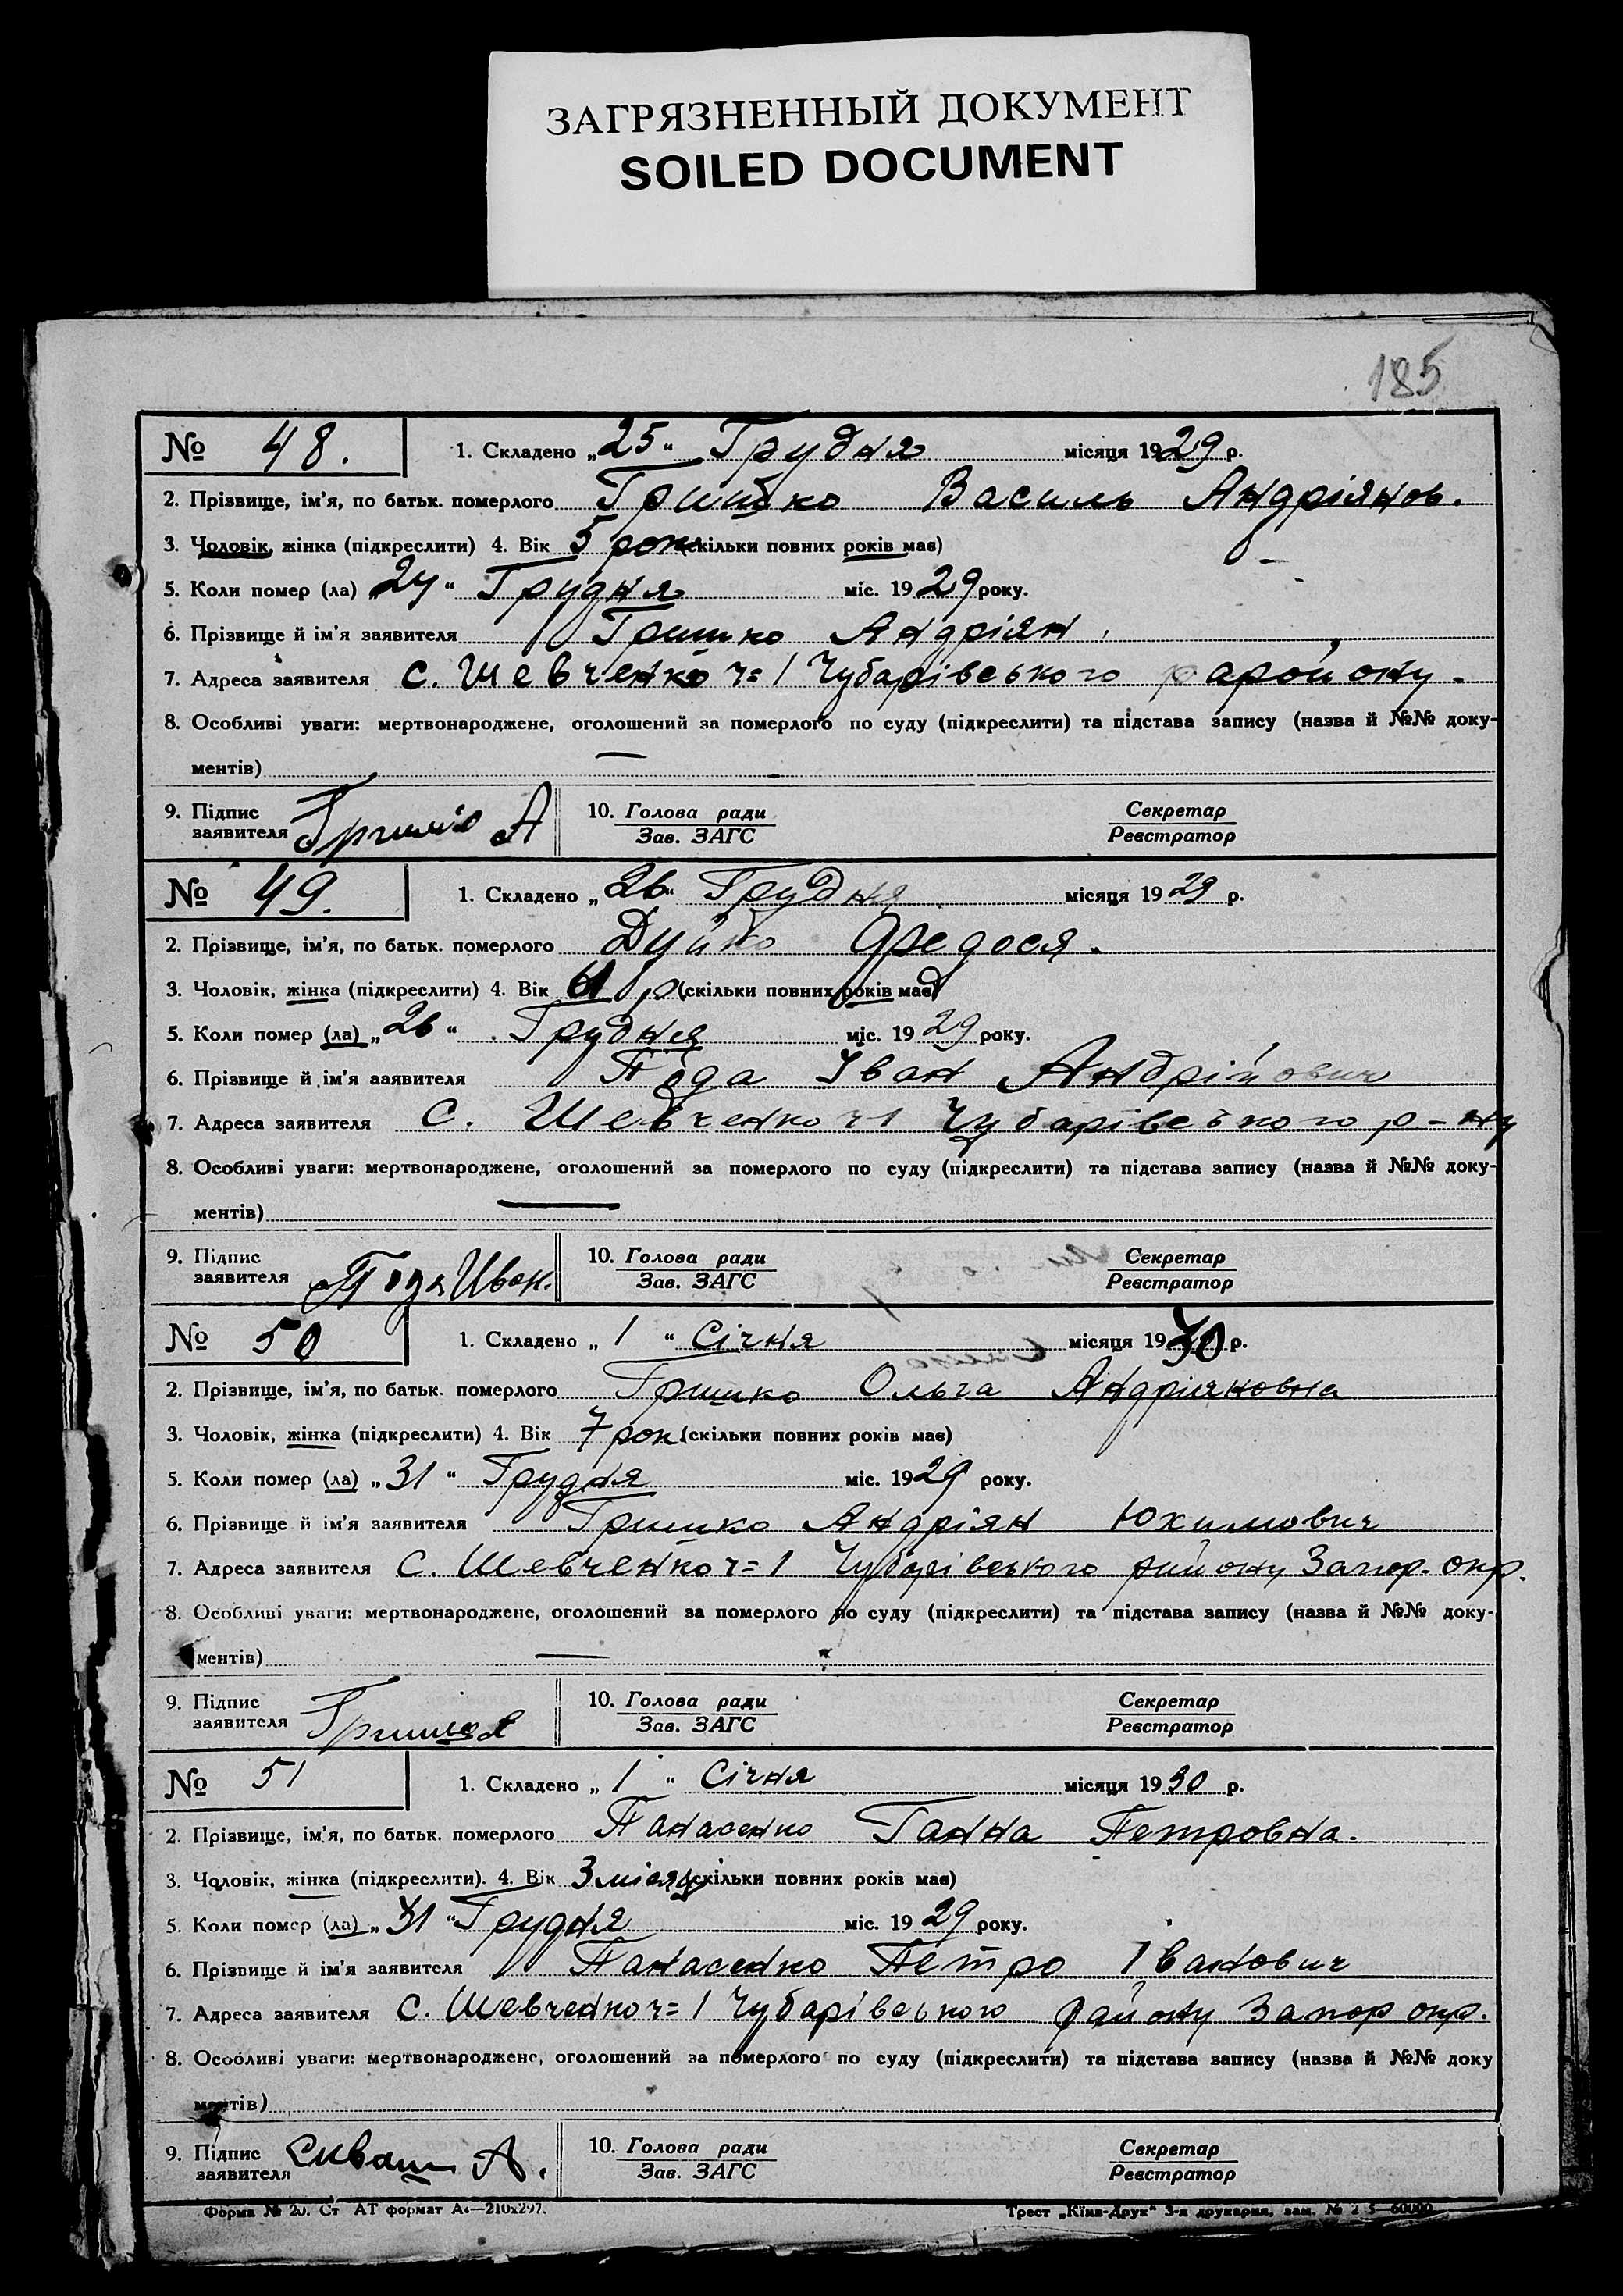 ЗАГРЯЗНЕННЫЙ ДОКУМЕНТ
SOILED DOCUMENT
185
№ 48. 1. Складено „25“ Грудня місяця 1929 р.
2. Прізвище, ім’я, по батьк. померлого Гришко Василь Андріянов.
3. Чоловік, жінка (підкреслити) 4. Вік 5 рок (скільки повних років має)
5. Коли помер (ла) 24“ Грудня міс. 1929 року.
6. Прізвище й ім’я заявителя Гришко Андріян
7. Адреса заявителя с. Шевченко ч=1 Чубарівського району.
8. Особливі уваги: мертвонароджене, оголошений за померлого по суду (підкреслити) та підстава запису (назва й №№ доку-
ментів) —
9. Підпис заявителя Гришко А 10. Голова ради Зав. ЗАГС Секретар Реєстратор
№ 49. 1. Складено „26“ Грудня місяця 1929 р.
2. Прізвище, ім’я, по батьк. померлого Дуйко Федося.
3. Чоловік, жінка (підкреслити) 4. Вік 61 р (скільки повних років має)
5. Коли помер (ла) „26“ Грудня міс. 1929 року.
6. Прізвище й ім’я заявителя Пода Іван Андрійович
7. Адреса заявителя с. Шевченко ч1 Чубарівського р-ну
8. Особливі уваги: мертвонароджене, оголошений за померлого по суду (підкреслити) та підстава запису (назва й №№ доку-
ментів) —
9. Підпис заявителя Пода Иван. 10. Голова ради Зав. ЗАГС Секретар Реєстратор
№ 50 1. Складено „1“ Січня місяця 1930 р.
2. Прізвище, ім’я, по батьк. померлого Гришко Ольга Андріяновна
3. Чоловік, жінка (підкреслити) 4. Вік 7 рок (скільки повних років має)
5. Коли помер (ла) „31“ Грудня міс. 1929 року.
6. Прізвище й ім’я заявителя Гришко Андріян Юхимович
7. Адреса заявителя с. Шевченко ч=1 Чубарівського району Запор. окр.
8. Особливі уваги: мертвонароджене, оголошений за померлого по суду (підкреслити) та підстава запису (назва й №№ доку-
ментів) —
9. Підпис заявителя 10. Голова ради Зав. ЗАГС Секретар Реєстратор
№ 51 1. Складено „1“ Січня місяця 1930 р.
2. Прізвище, ім’я, по батьк. померлого Панасенко Ганна Петровна.
3. Чоловік, жінка (підкреслити). 4. Вік 3 місяц (скільки повних років має)
5. Коли помер (ла) „31“ Грудня міс. 1929 року.
6. Прізвище й ім’я заявителя Панасенко Петро Іванович
7. Адреса заявителя с. Шевченко ч=1 Чубарівського району Запор окр.
8. Особливі уваги: мертвонароджене, оголошений за померлого по суду (підкреслити) та підстава запису (назва й №№ доку
ментів)
9. Підпис заявителя Сиваш А. 10. Голова ради Зав. ЗАГС Секретар Реєстратор
Форма № 20. Ст АТ формат А4—210х297. Трест „Київ-Друк“ 3-я друкарня, зам. №